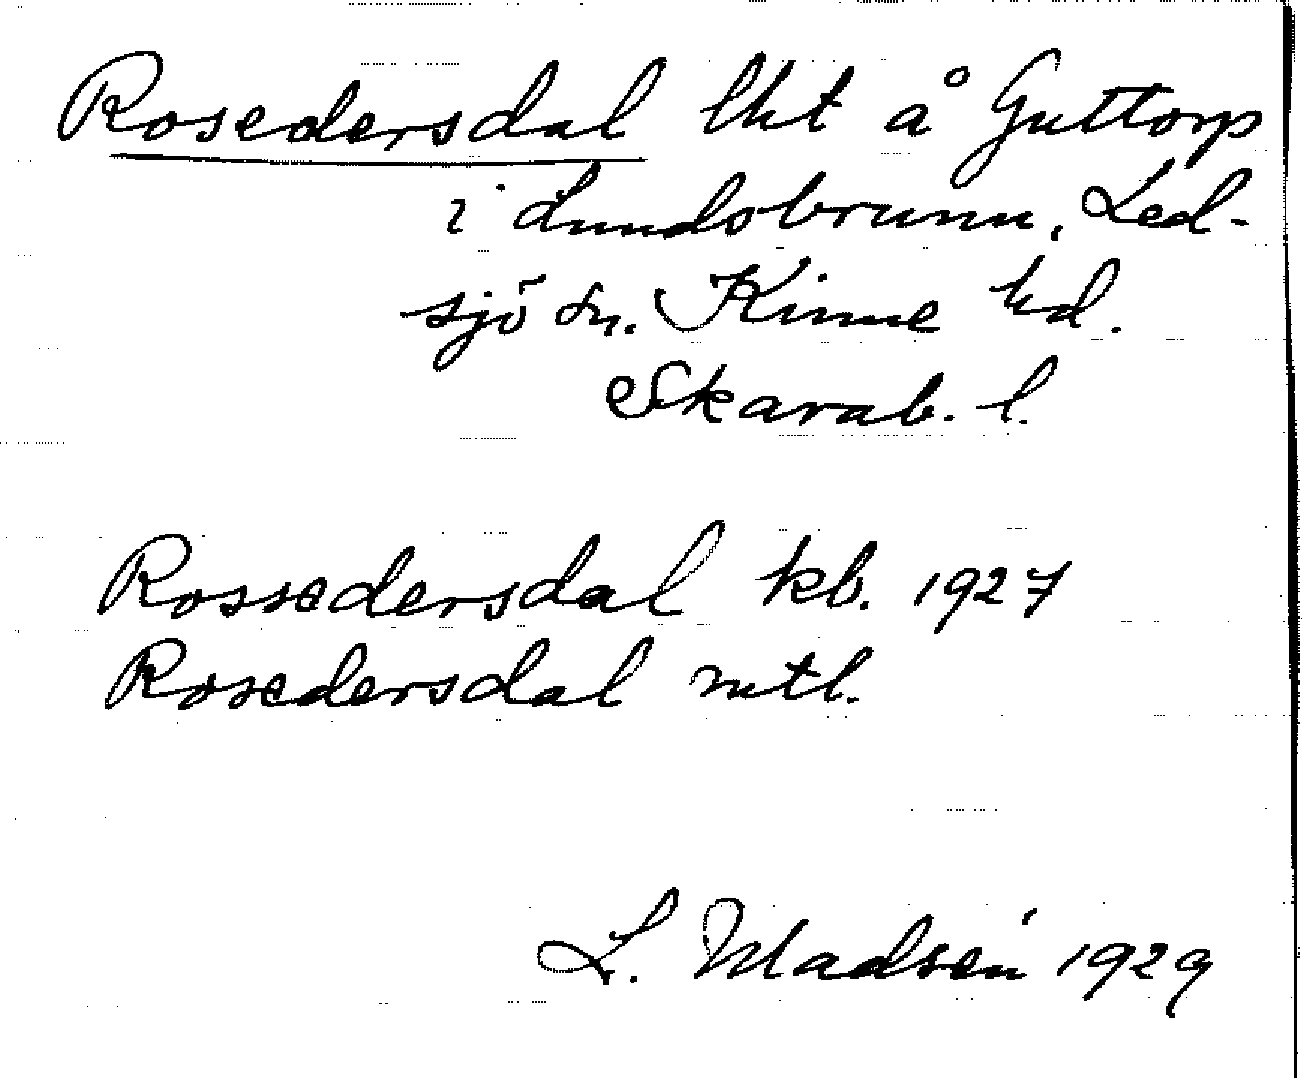 Rosedersdal lht å Guttorp
i Lundsbrunn, Led-
sjö sn. Kinne hd.
Skarab. l.
Rossedersdal kb. 1927
Rosedersdal mtl.
L. Madsén 1929